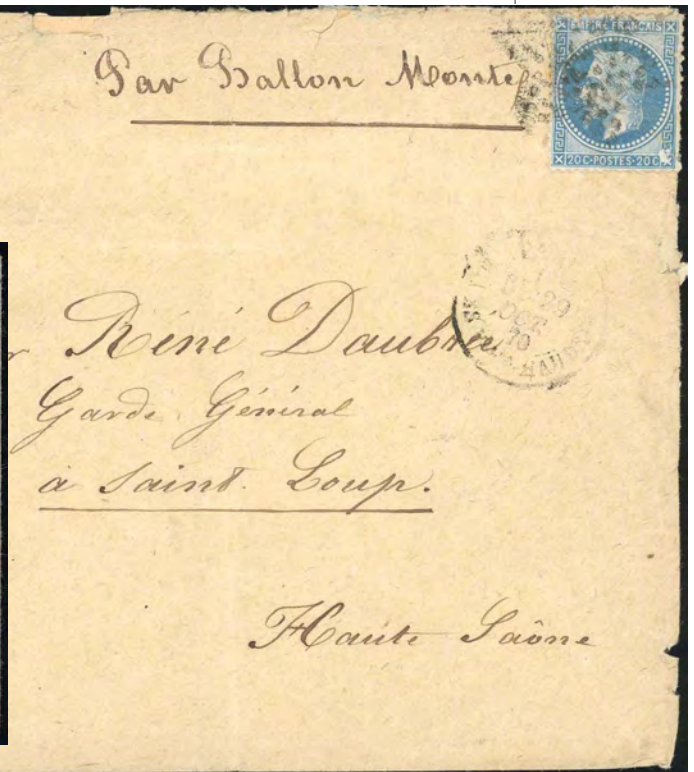 Par Ballon Monté
EMPIRE FRANÇAIS
20C·POSTES·20C
29
OCT
70
Réné Daubrée
Garde Général
à Saint Loup.
Haute Saône